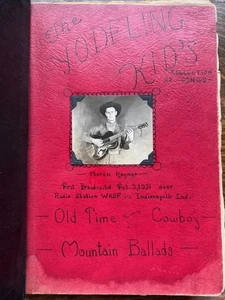 The
YODELING
KID'S
COLLECTION
OF SONGS
First Broadcasted Feb. 7, 1931 over
Radio Station WKBF in Indianapolis Ind.
Old Time Cowboy
Mountain Ballads